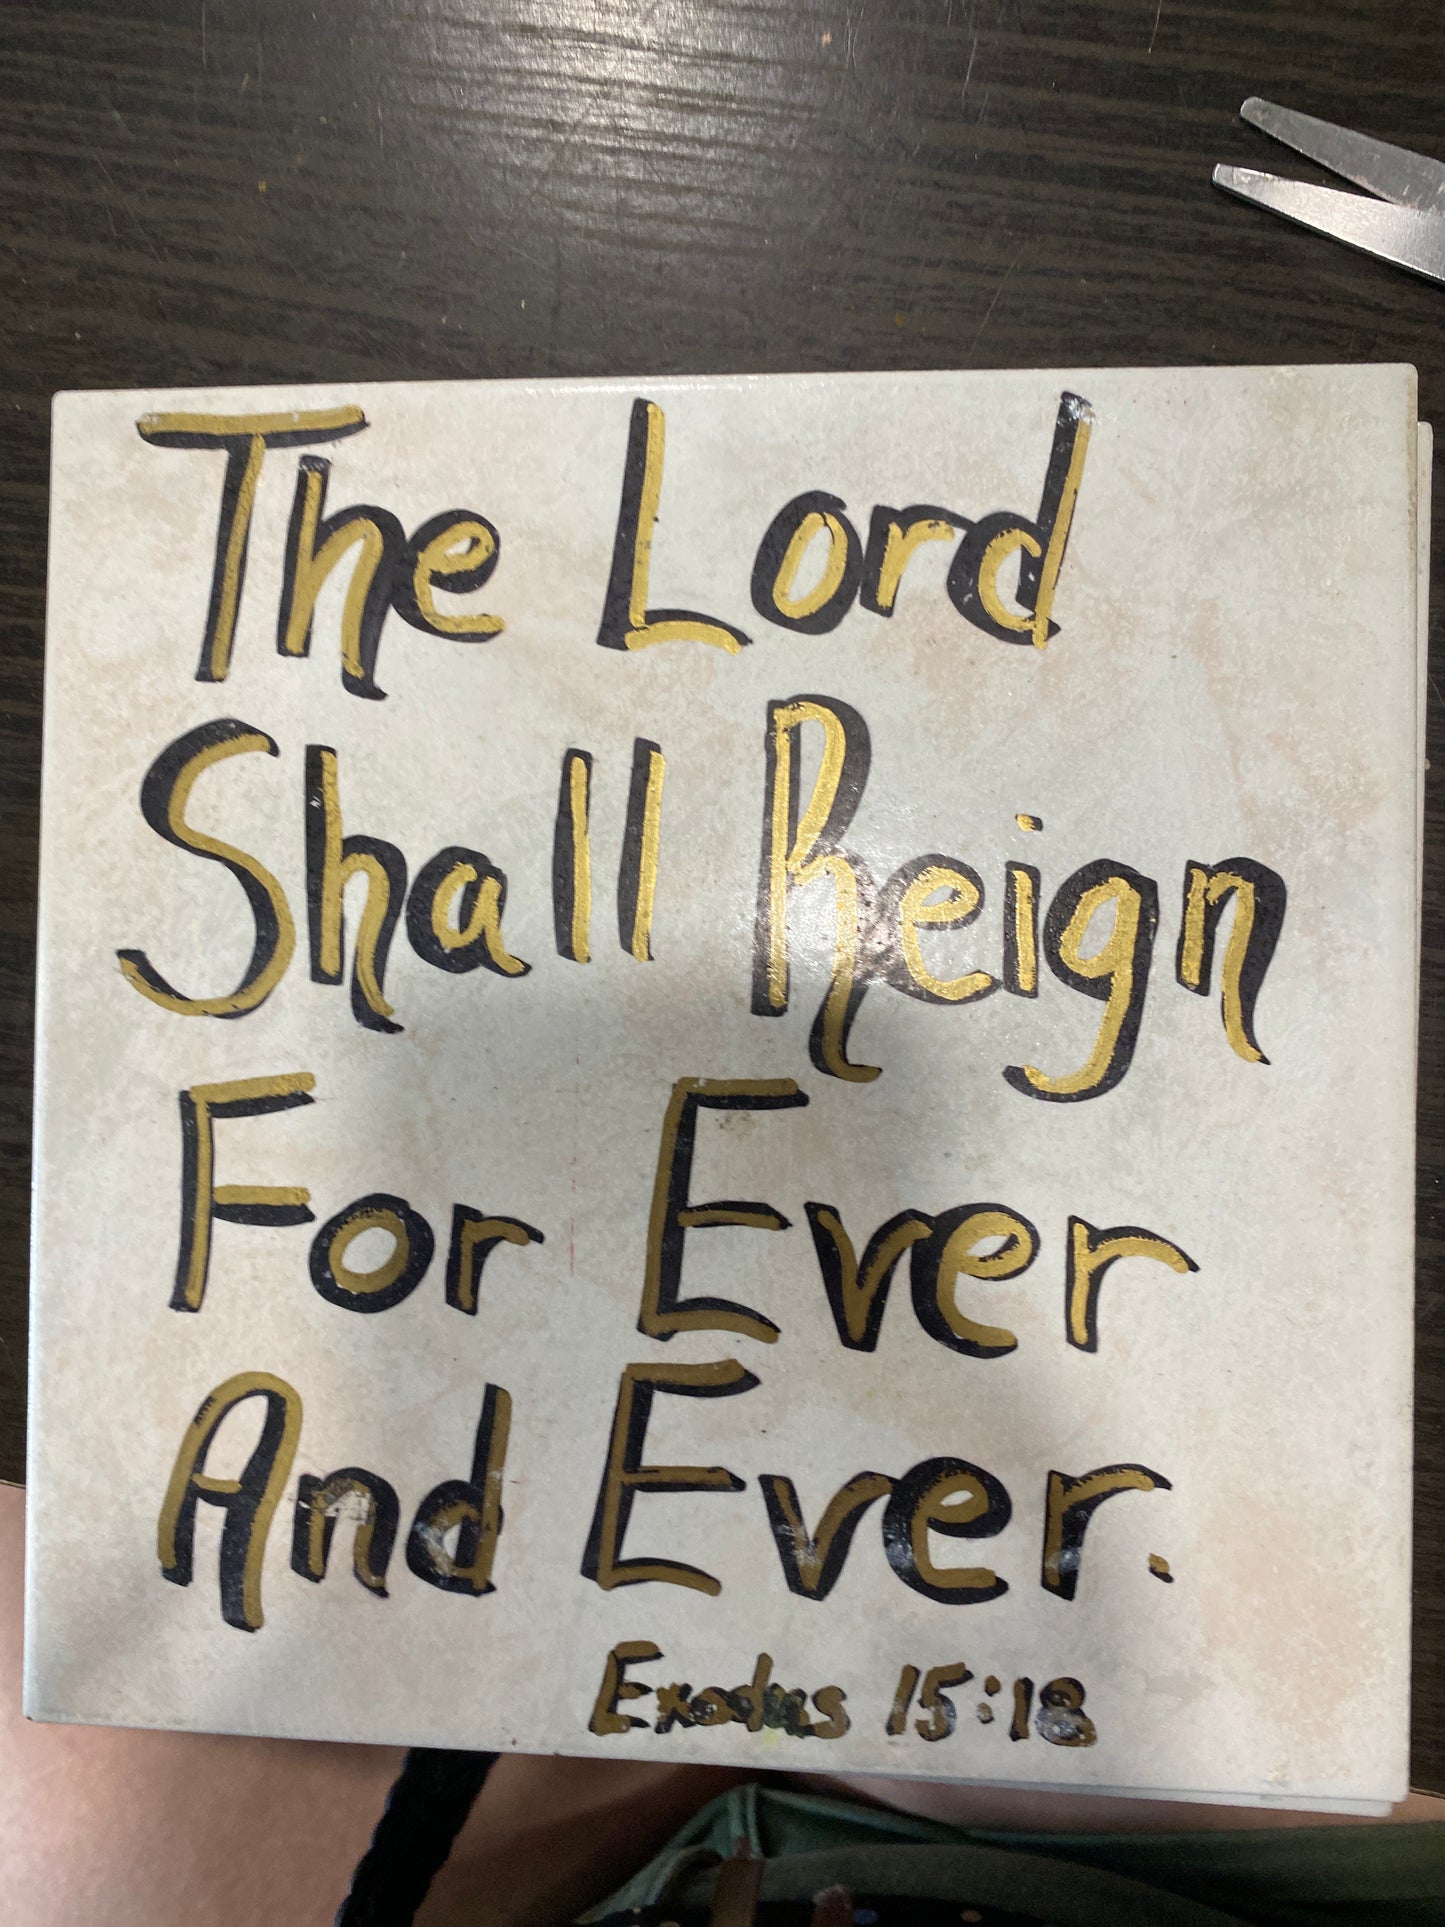 The Lord
Shall Reign
For Ever
And Ever.
Exodus 15:18